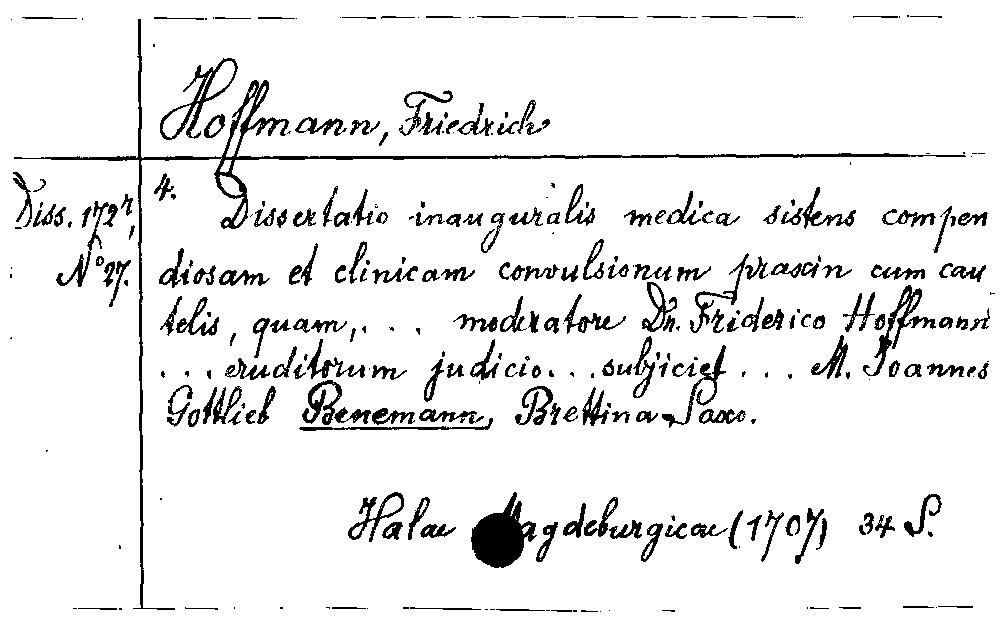 Hoffmann, Friedrich
Diss. 172r,
No 27.
4. Dissertatio inauguralis medica sistens compen
diosam et clinicam convulsionum praxin cum cau
telis, quam, . . . moderatore Dn. Friderico Hoffmann
. . . eruditorum judicio . . . subjiciet . . . M. Joannes
Gottlieb Benemann, Brettina-Saxo.
Halae Magdeburgicae (1707) 34 S.